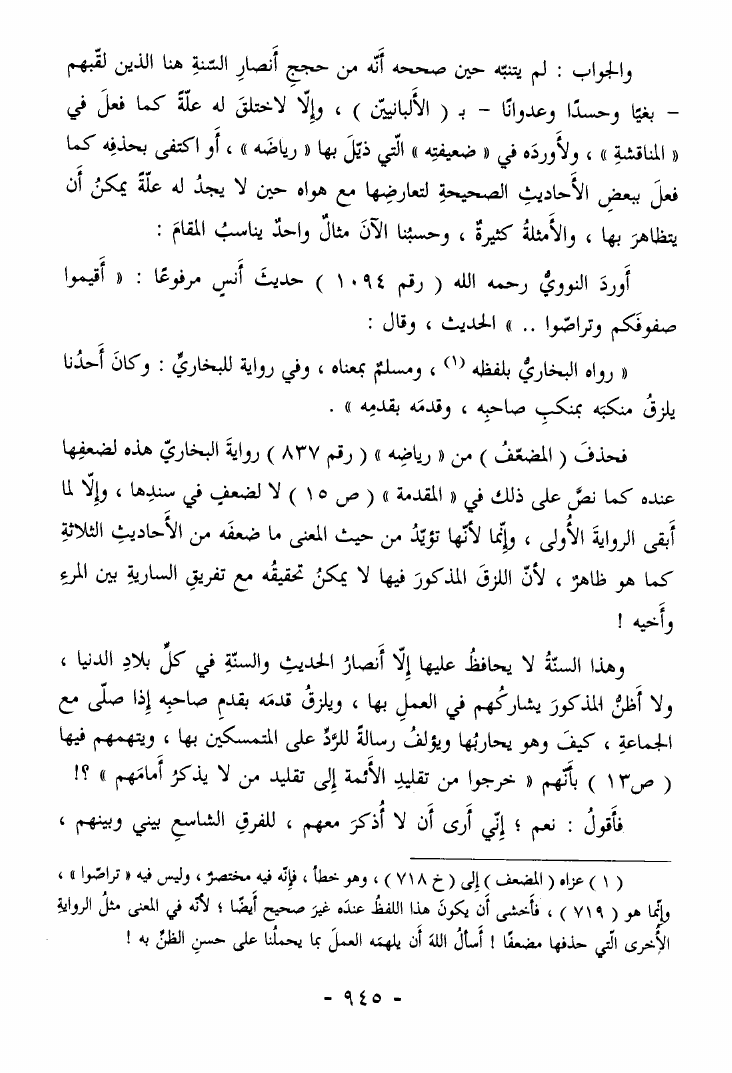 والجواب : لم يتنبّه حين صححه أنّه من حججِ أنصارِ السّنةِ هنا الذين لقّبهم
– بغيًا وحسدًا وعدوانًا – بـ ( الألبانيّين ) ، وإلّا لاختلقَ له علّةً كما فعلَ في
« المناقشةِ » ، ولأوردَه في « ضعيفتِه » الّتي ذيّلَ بها « رياضَه » ، أو اكتفى بحذفِه كما
فعلَ ببعضِ الأحاديثِ الصحيحةِ لتعارضِها مع هواه حين لا يجدُ له علّةً يمكنُ أن
يتظاهرَ بها ، والأمثلةُ كثيرةٌ ، وحسبُنا الآنَ مثالٌ واحدٌ يناسبُ المقامَ :
أوردَ النوويُّ رحمه الله ( رقم ١٠٩٤ ) حديثَ أنسٍ مرفوعًا : « أقيموا
صفوفَكم وتراصّوا .. » الحديث ، وقال :
« رواه البخاريُّ بلفظه (١) ، ومسلمٌ بمعناه ، وفي رواية للبخاريِّ : وكانَ أحدُنا
يلزقُ منكبَه بمنكبِ صاحبِه ، وقدمَه بقدمِه » .
فحذفَ ( المضعّفُ ) من « رياضِه » ( رقم ٨٣٧ ) روايةَ البخاريّ هذه لضعفِها
عنده كما نصَّ على ذلك في « المقدمة » ( ص ١٥ ) لا لضعفٍ في سندِها ، وإلّا لما
أبقى الروايةَ الأولى ، وإنّما لأنّها تؤيّدُ من حيث المعنى ما ضعفَه من الأحاديثِ الثلاثةِ
كما هو ظاهرٌ ، لأنّ اللزقَ المذكورَ فيها لا يمكنُ تحقيقُه مع تفريقِ الساريةِ بين المرءِ
وأخيه !
وهذا السنّةُ لا يحافظُ عليها إلّا أنصارُ الحديثِ والسنّةِ في كلِّ بلادِ الدنيا ،
ولا أظنُّ المذكورَ يشاركُهم في العملِ بها ، ويلزقُ قدمَه بقدمِ صاحبِه إذا صلّى مع
الجماعةِ ، كيفَ وهو يحاربُها ويؤلفُ رسالةً للرَّدِّ على المتمسكين بها ، ويتهمهم فيها
( ص١٣ ) بأنّهم « خرجوا من تقليدِ الأئمة إلى تقليد من لا يذكرُ أمامَهم » ؟!
فأقولُ : نعم ؛ إنّي أرى أن لا أُذكرَ معهم ، للفرقِ الشاسعِ بيني وبينهم ،
( ١ ) عزاه ( المضعف ) إلى ( خ ٧١٨ ) ، وهو خطأ ، فإنّه فيه مختصرٌ ، وليس فيه « تراصّوا » ،
وإنّما هو ( ٧١٩ ) ، فأخشى أن يكونَ هذا اللفظُ عندَه غيرَ صحيح أيضًا ؛ لأنّه في المعنى مثلُ الروايةِ
الأخرى الّتي حذفها مضعفًا ! أسألُ اللهَ أن يلهمَه العملَ بما يحملُنا على حسنِ الظنِّ به !
- ٩٤٥ -